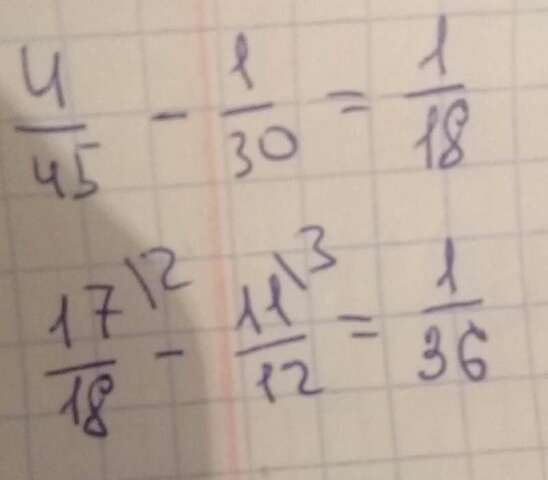 4/45 - 1/30 = 1/18
17\2/18 - 11\3/12 = 1/36